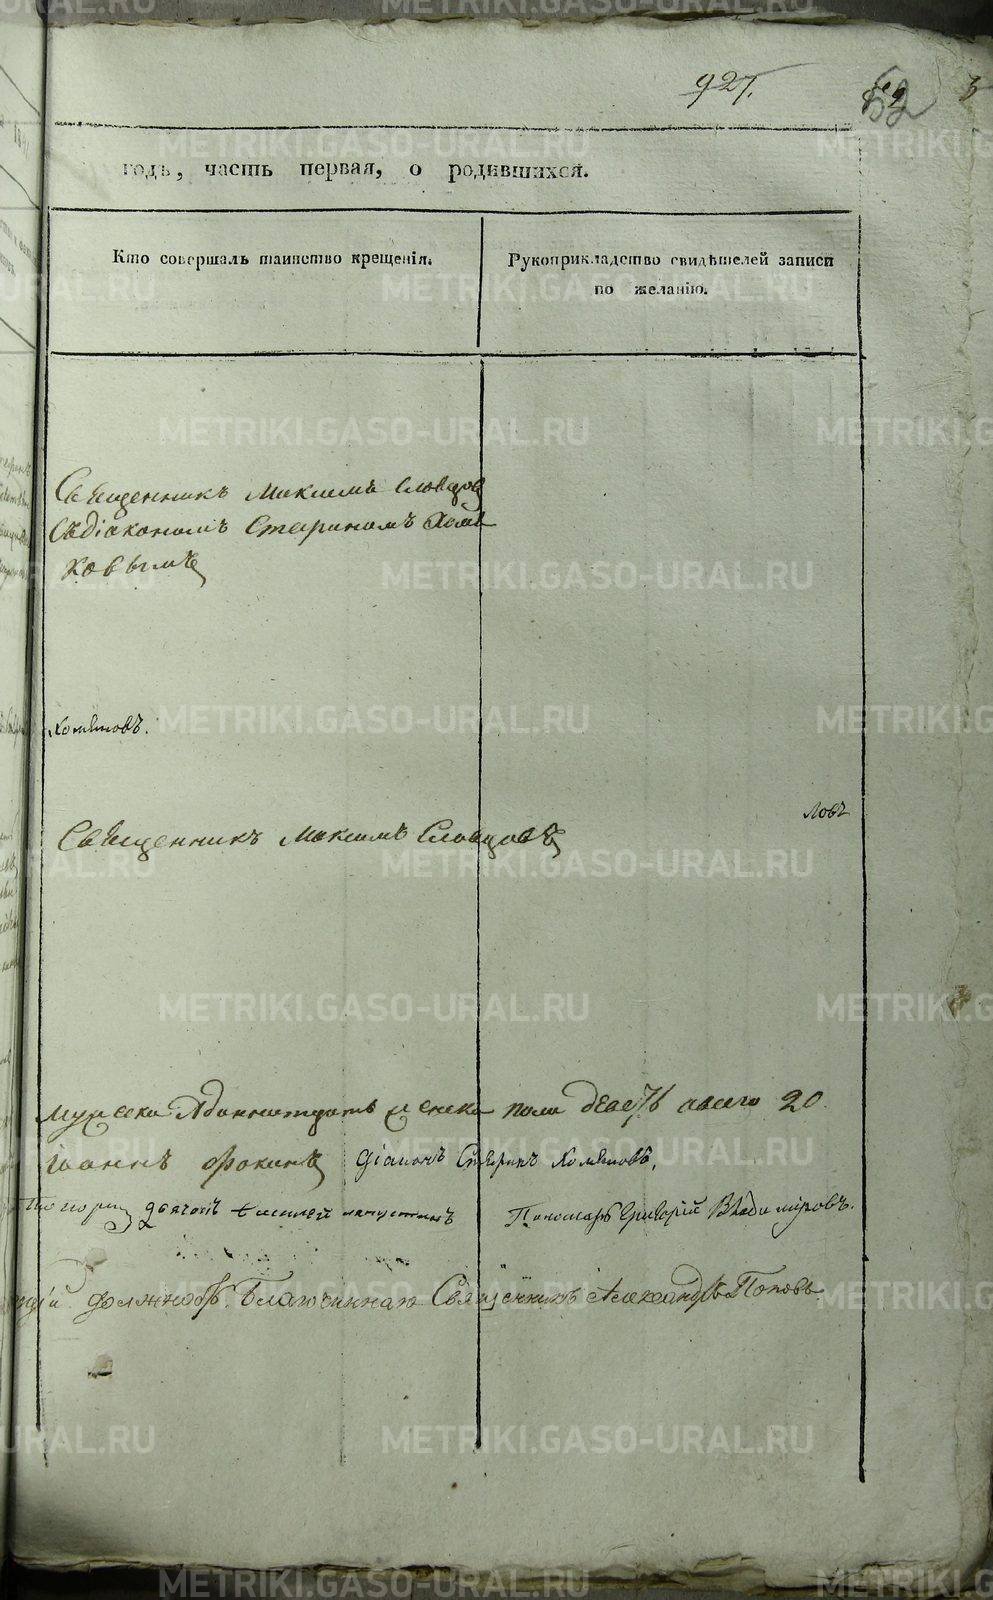 927.
52
годъ, часть первая, о родившихся.
Кто совершалъ таинство крещенія.
Рукоприкладство свидѣтелей записи
по желанію.
Священникъ Максимъ Словцов
Съдіакономъ Стефаномъ Хомя
ковымъ
Хомяковъ.
ловъ
Священникъ Максимъ Словцовъ
мужеска женска пола всего 20
Іоаннъ Фокинъ діаконъ Стефанъ Хомяковъ,
Пономарь Григорій Владимировъ.
должность Благочиннаго Священникъ Александръ Поповъ
METRIKI.GASO-URAL.RU